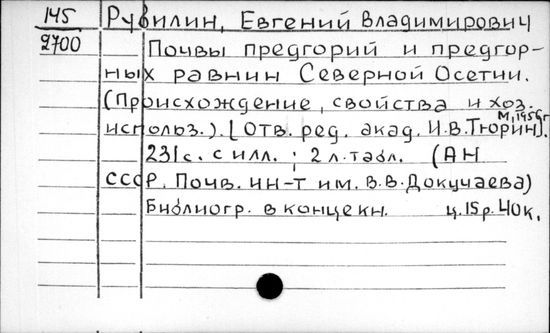 145 Рубилин, Евгений Владимирович
2700 Почвы предгорий и предгор-
ных равнин Северной Осетии.
(Происхождение, свойства и хоз.
М, 1956г
использ.). [Отв. ред. акад. И.В.Тюрин].
231с. с илл. ; 2 л.табл. (АН
СССР. Почв. ин-т им. В.В.Докучаева)
Библиогр. в конце кн. ц.15р.40к.